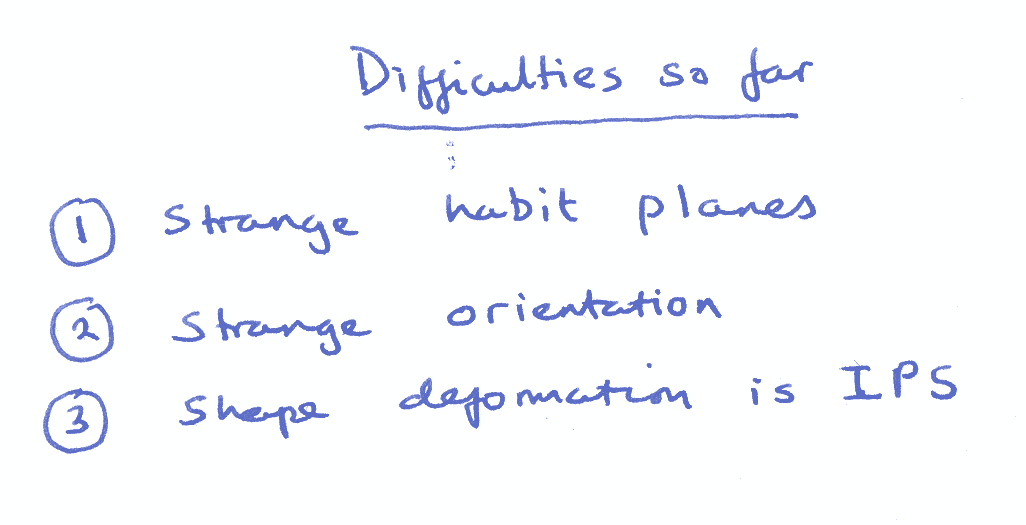 Difficulties so far
1 Strange habit planes
2 Strange orientation
3 Shape deformation is IPS